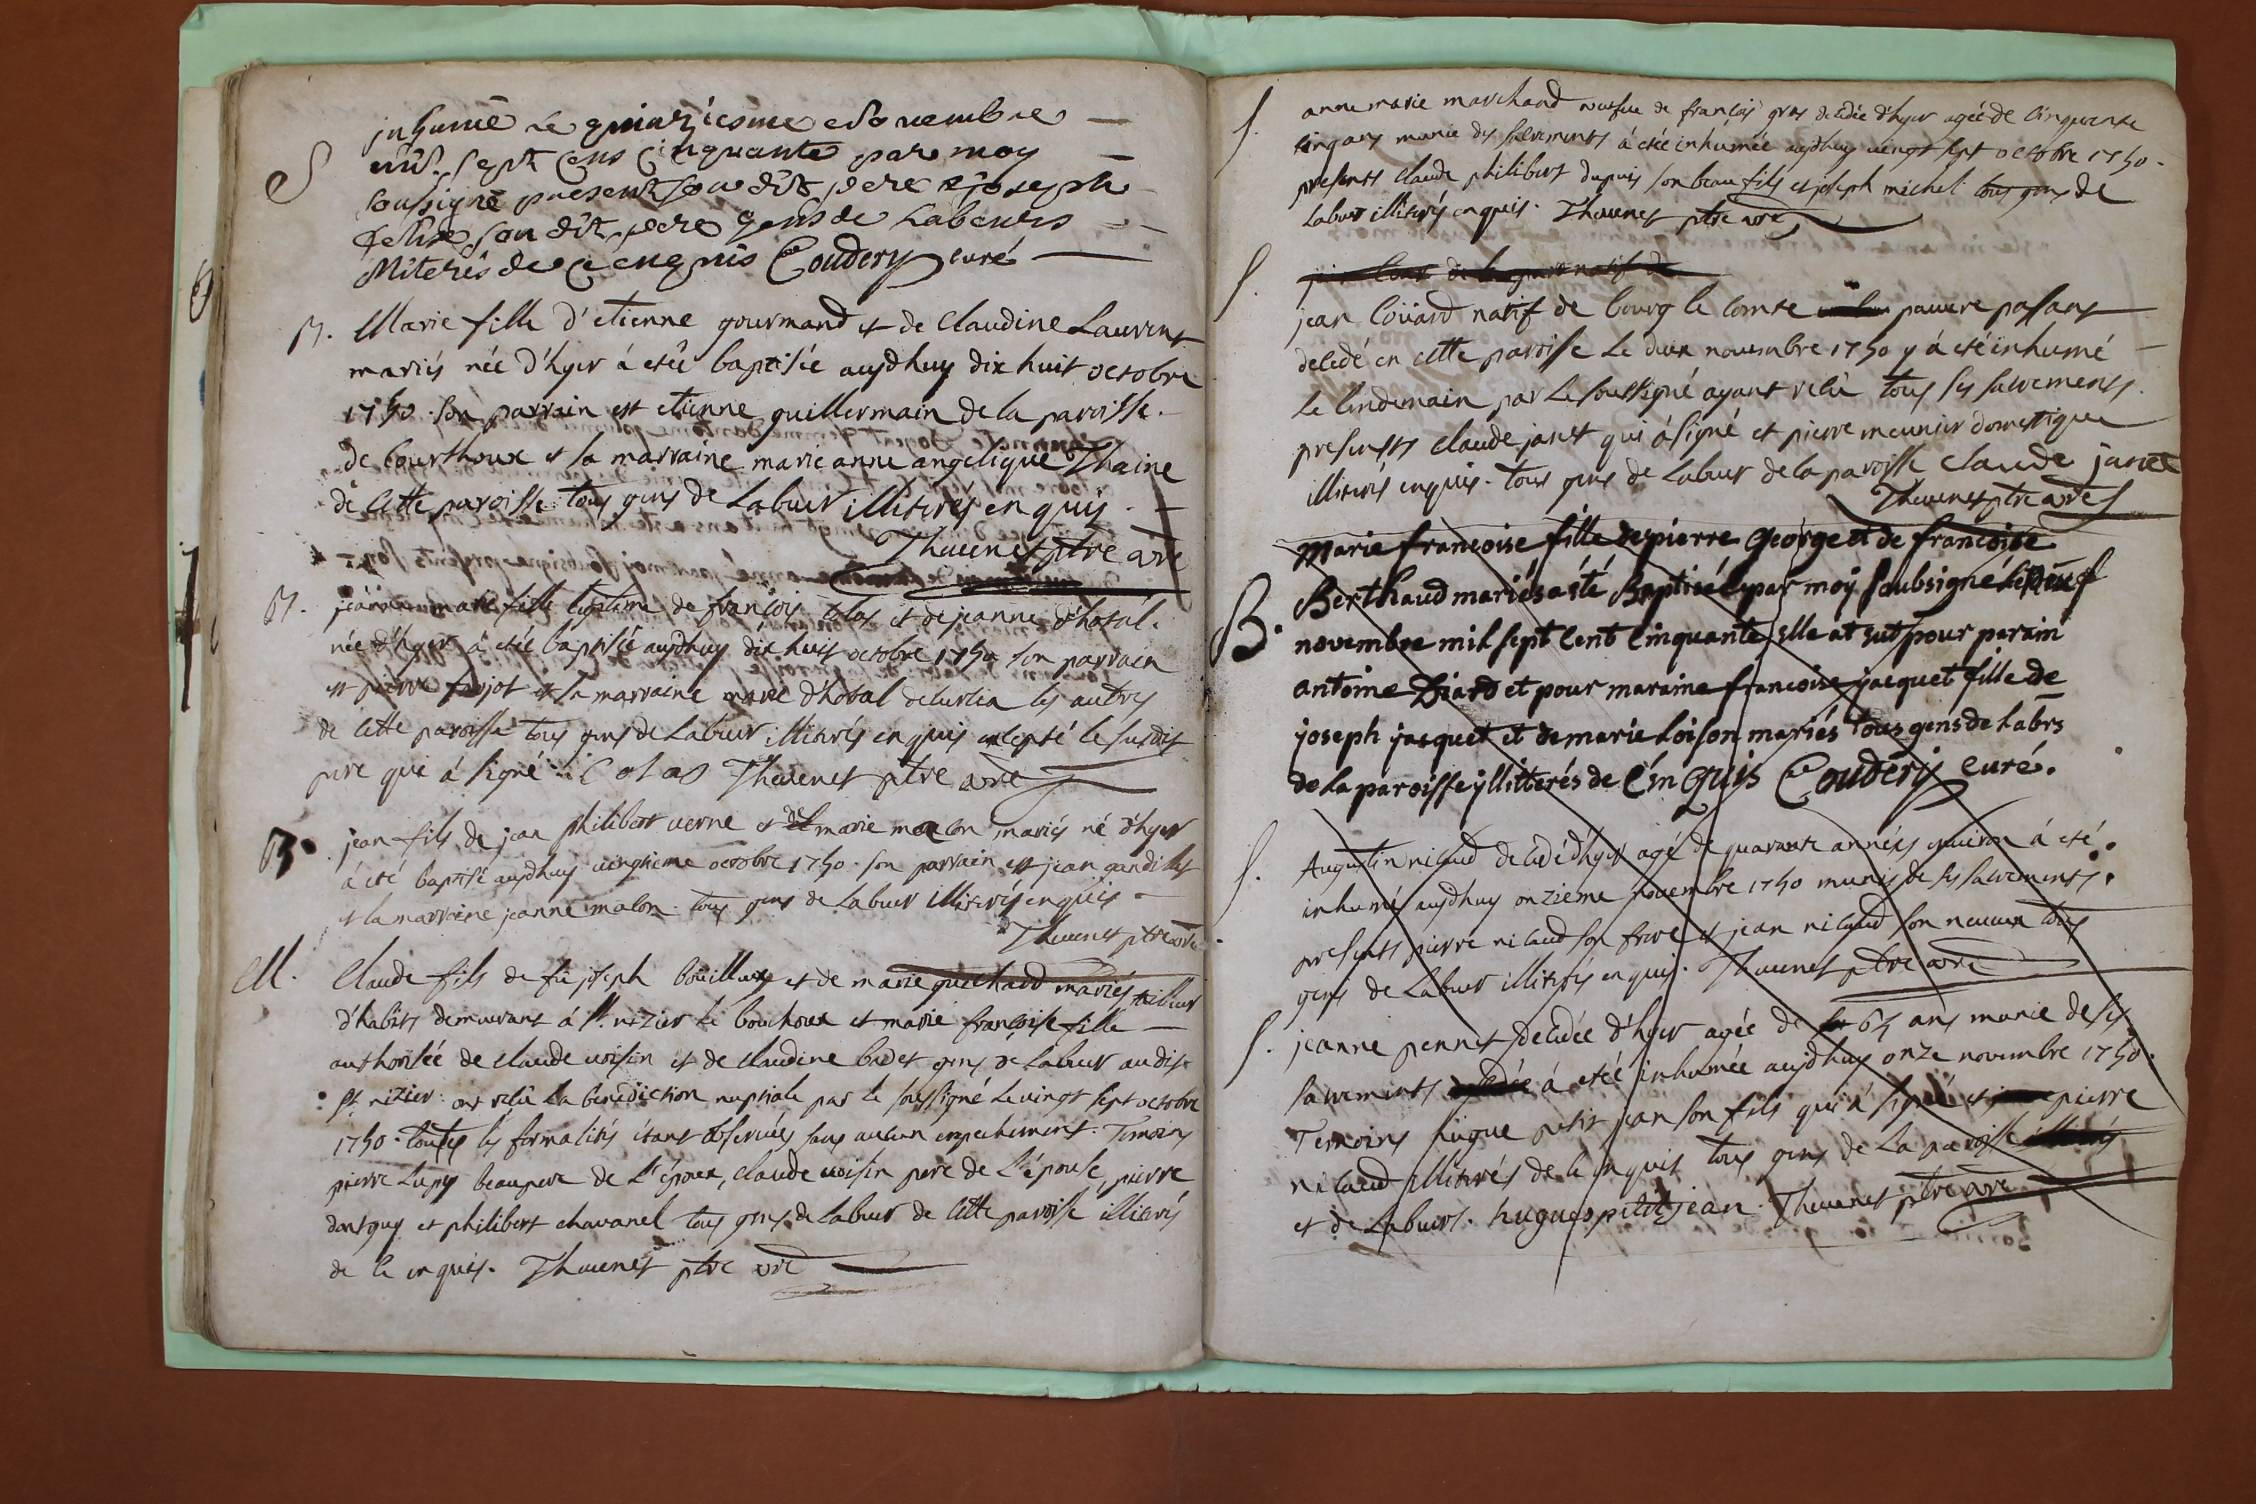 inhumé le quinziesme Novembre
S
mil sept cens cinquante par moy
soussigné present son dit pere et joseph
son dit pere gens de Labeurs
illiterés de ce enquis Coudery curé
B. Marie fille d'etienne gourmand et de Claudine Laurent
mariés née d'hyer á etée baptisée aujdhuy dix huit octobre
1750. son parrain est etienne guillermain de la paroisse
de Courthoux et sa marraine marie anne angelique Thaine
de Cette paroisse tous gens de Labeur illiterés enquis.
Thevenet ptre vre
B. jeanne marie fille legitime de françois Colas et de jeanne d'hotal.
née d'hyer á etée baptisée aujdhuy dix huit octobre 1750 son parrain
est pierre farjot et sa marraine marie d'hotal de curtia les autres
de Cette paroisse tous gens de Labeur illiterés enquis excepté le susdit
pere qui á signé. Colas Thevenet ptre vre
B. jean fils de jean philibert verne et de marie malon mariés né d'hyer
á eté baptisé aujdhuy vingtieme octobre 1750. son parrain est jean gandillet
et la marraine jeanne malon. tous gens de Labeur illiterés enquis
Thevenet ptre vre
M. Claude fils de fû joseph bouilloux et de marie guichard mariés tailleur
d'habits demeurant á st. nizier le bouchoux et marie françoise fille
authorisée de claude voisin et de claudine badet gens de Labeur audit
st. nizier ont reçû la benediction nuptiale par le soussigné le vingt sept octobre
1750. toutes les formalités étant observées sans aucun empechement. Temoins
pierre Lupy beaupere de L'époux, claude voisin pere de L'épouse, pierre
dantguy et philibert chavanel tous gens de Labeur de Cette paroisse illiterés
de ce enquis. Thevenet ptre vre
S. anne marie marchand veufve de françois gras decédée d'hyer agée de Cinquante
cinq ans munie des sacrements á etée inhumée aujdhuy vingt sept octobre 1750.
presents Claude philibert dupuis son beau fils et joseph michel tous gens de
Labeur illiterés enquis. Thevenet ptre vre
S.
jean Coüard natif de bourg le Comte pauvre passant
decedé en cette paroisse Le deux novembre 1750 y á eté inhumé
Le lendemain par Le soussigné ayant reçû tous ses sacrements.
presents claude janet qui á signé et pierre meunier domestique
illiterés enquis. tous gens de Labeur de la paroisse Claude janet
Thevenet ptre vre
Marie francoise fille de pierre George et de francoise
B. Berthaud mariés a ésté Baptisée par moy soubsigné le neuf
novembre mil sept Cent Cinquante, elle at eut pour parain
antoine Diard et pour maraine francoise jacquet fille de
joseph jacquet et de marie Loison mariés tous gens de Labrs
de la paroisse yllitterés de C'enquis Coudery Curé.
S. Augustin nicaud decedé d'hyer agé de quarante années environ á eté
inhumé aujdhuy onzieme novembre 1750 munis de ses sacrements.
presents pierre nicaud son frere et jean nicaud son neveux tous
gens de Labeur illiterés enquis. Thevenet ptre vre
S. jeanne pennet decedée d'hyer agée de 65 ans munie de ses
sacrements á etée inhumée aujdhuy onze novembre 1750.
Temoins hugue petit jean son fils qui á signé et pierre
nicaud illiterés de ce enquis tous gens de La paroisse
et de Labeurs. hugues petitjean. Thevenet ptre vre